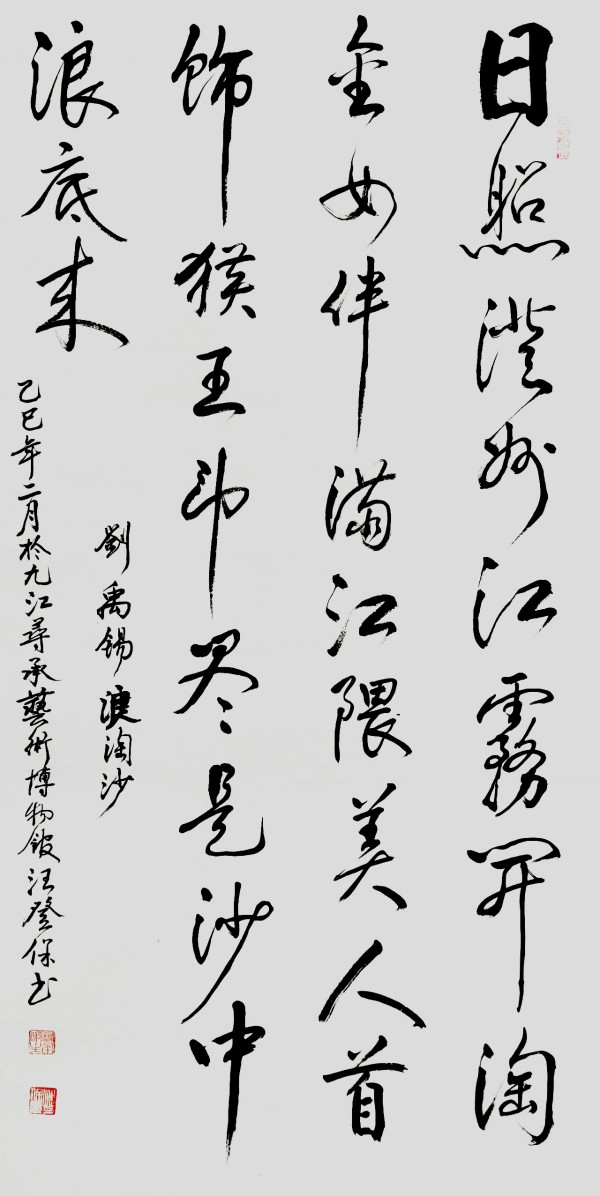 日照澄州江霧开淘
金女伴满江隈美人首
飾猴王印尽是沙中
浪底来
劉禹锡浪淘沙
乙巳年二月於九江尋承藝術博物館汪登保书